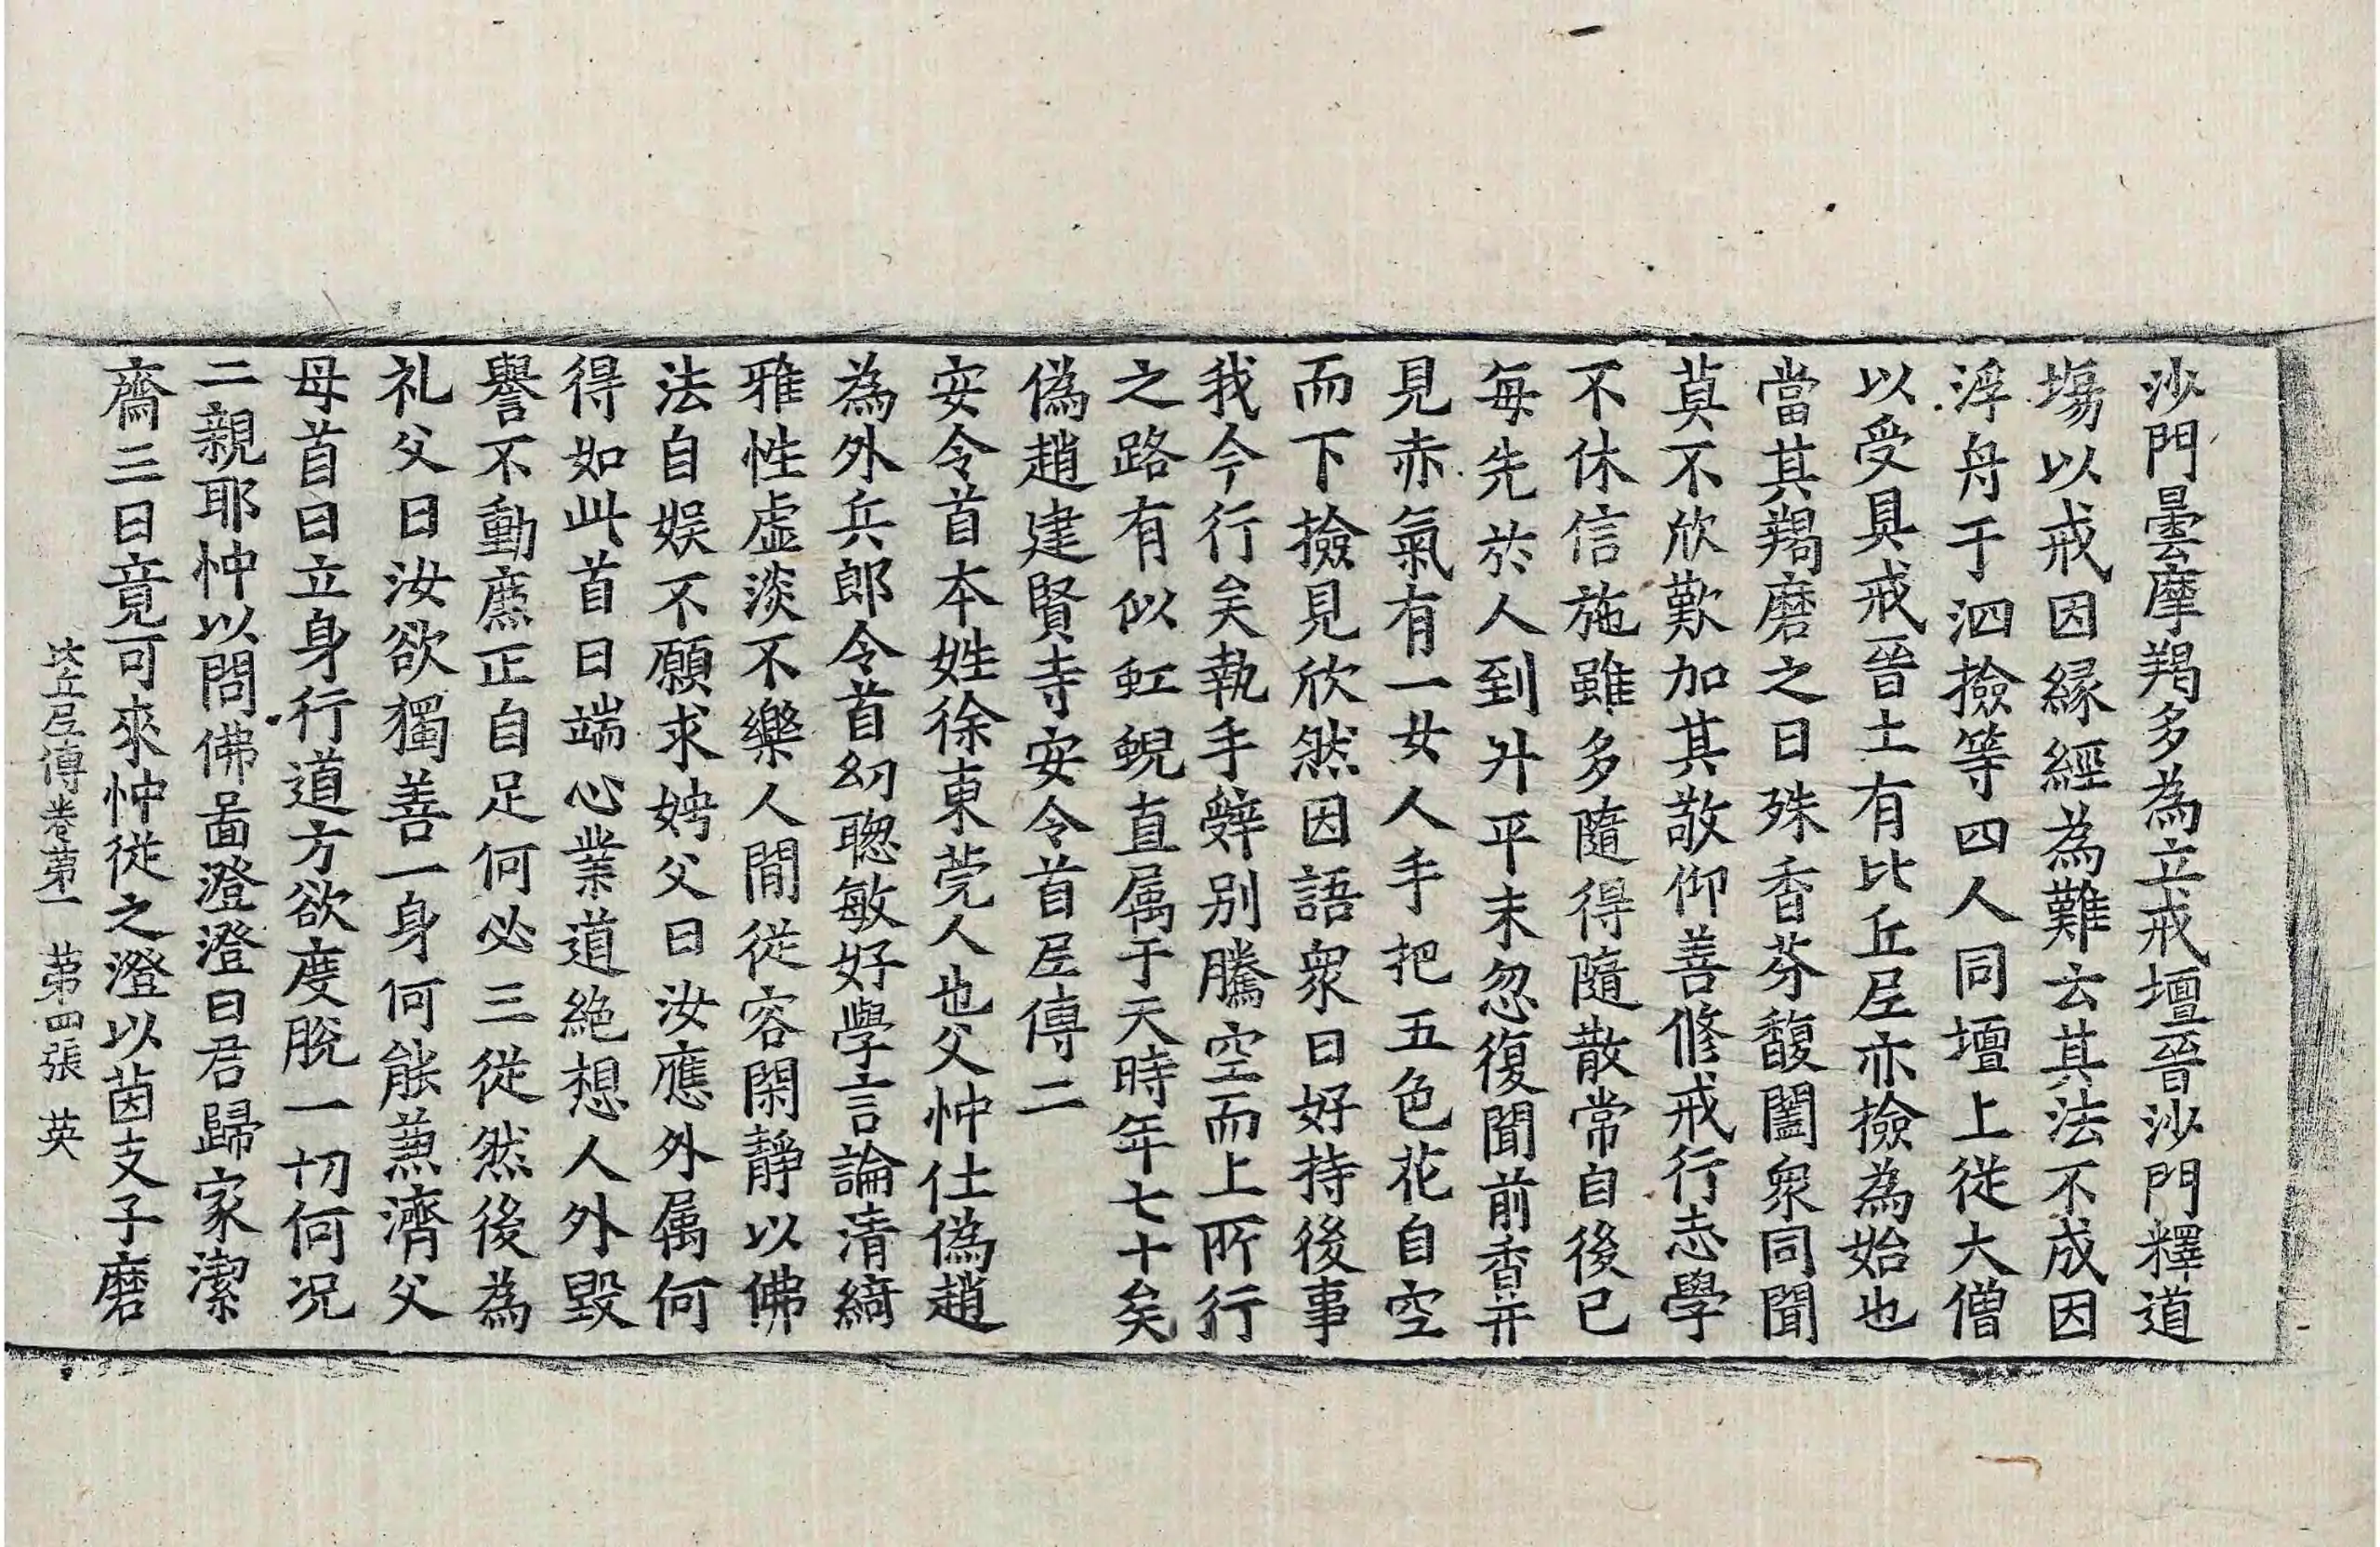 沙門曇摩羯多為立戒壇晉沙門釋道
塲以戒因縁經為難云其法不成因
浮舟于泗撿等四人同壇上從大僧
以受具戒晉土有比丘尼亦撿為始也
當其羯磨之日殊香芬馥闔衆同聞
莫不欣歎加其敬仰善修戒行志學
不休信施雖多隨得隨散常自後已
每先於人到升平末忽復聞前香并
見赤氣有一女人手把五色花自空
而下撿見欣然因語衆曰好持後事
我今行矣執手辤別騰空而上所行
之路有似虹蜺直属于天時年七十矣
偽趙建賢寺安令首尼傳二
安令首本姓徐東莞人也父忡仕偽趙
為外兵郎令首幼聦敏好學言論清綺
雅性虛淡不樂人間從容閑靜以佛
法自娯不願求娉父曰汝應外属何
得如此首曰端心業道絶想人外毀
譽不動廌正自足何必三從然後為
礼父曰汝欲獨善一身何能兼濟父
母首曰立身行道方欲度脫一切何況
二親耶忡以問佛啚澄澄曰君歸家潔
齋三日竟可來忡從之澄以茵支子磨
比丘尼傳卷第一 第四張 英